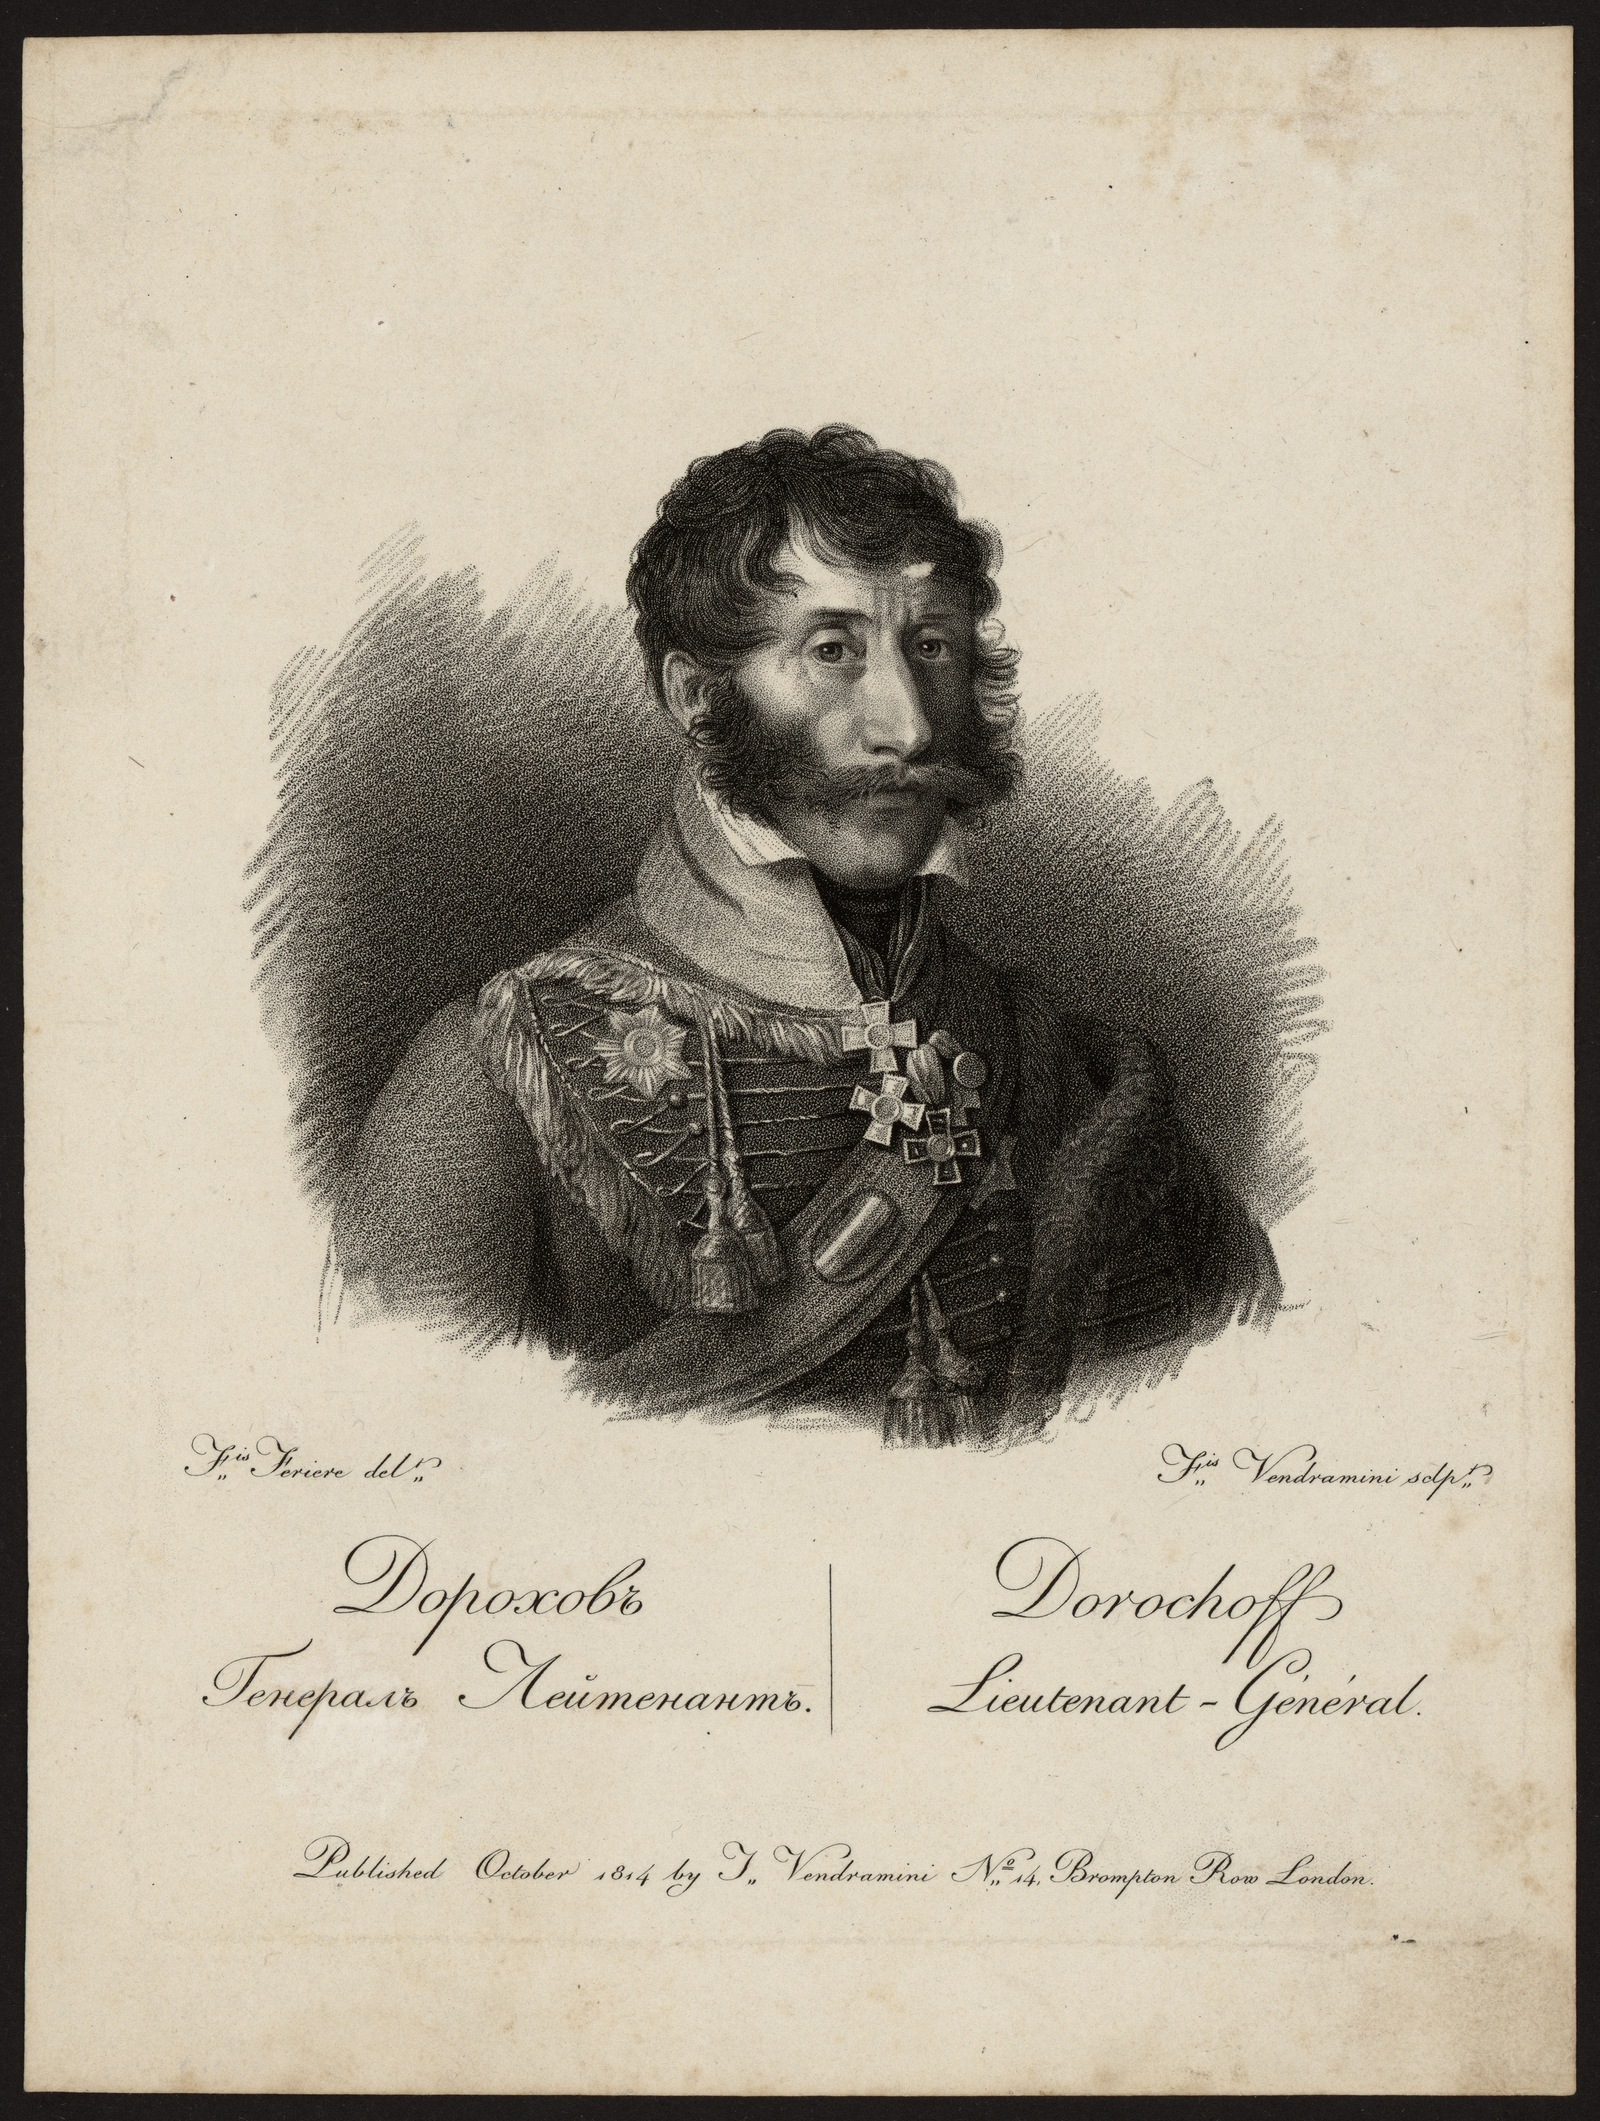 Fis Feriere delt.
Fis Vendramini sclpt.
Дороховъ
Генералъ Лейтенантъ.
Dorochoff
Lieutenant - Général.
Published October 1814 by I,, Vendramini No,, 14, Brompton Row London.